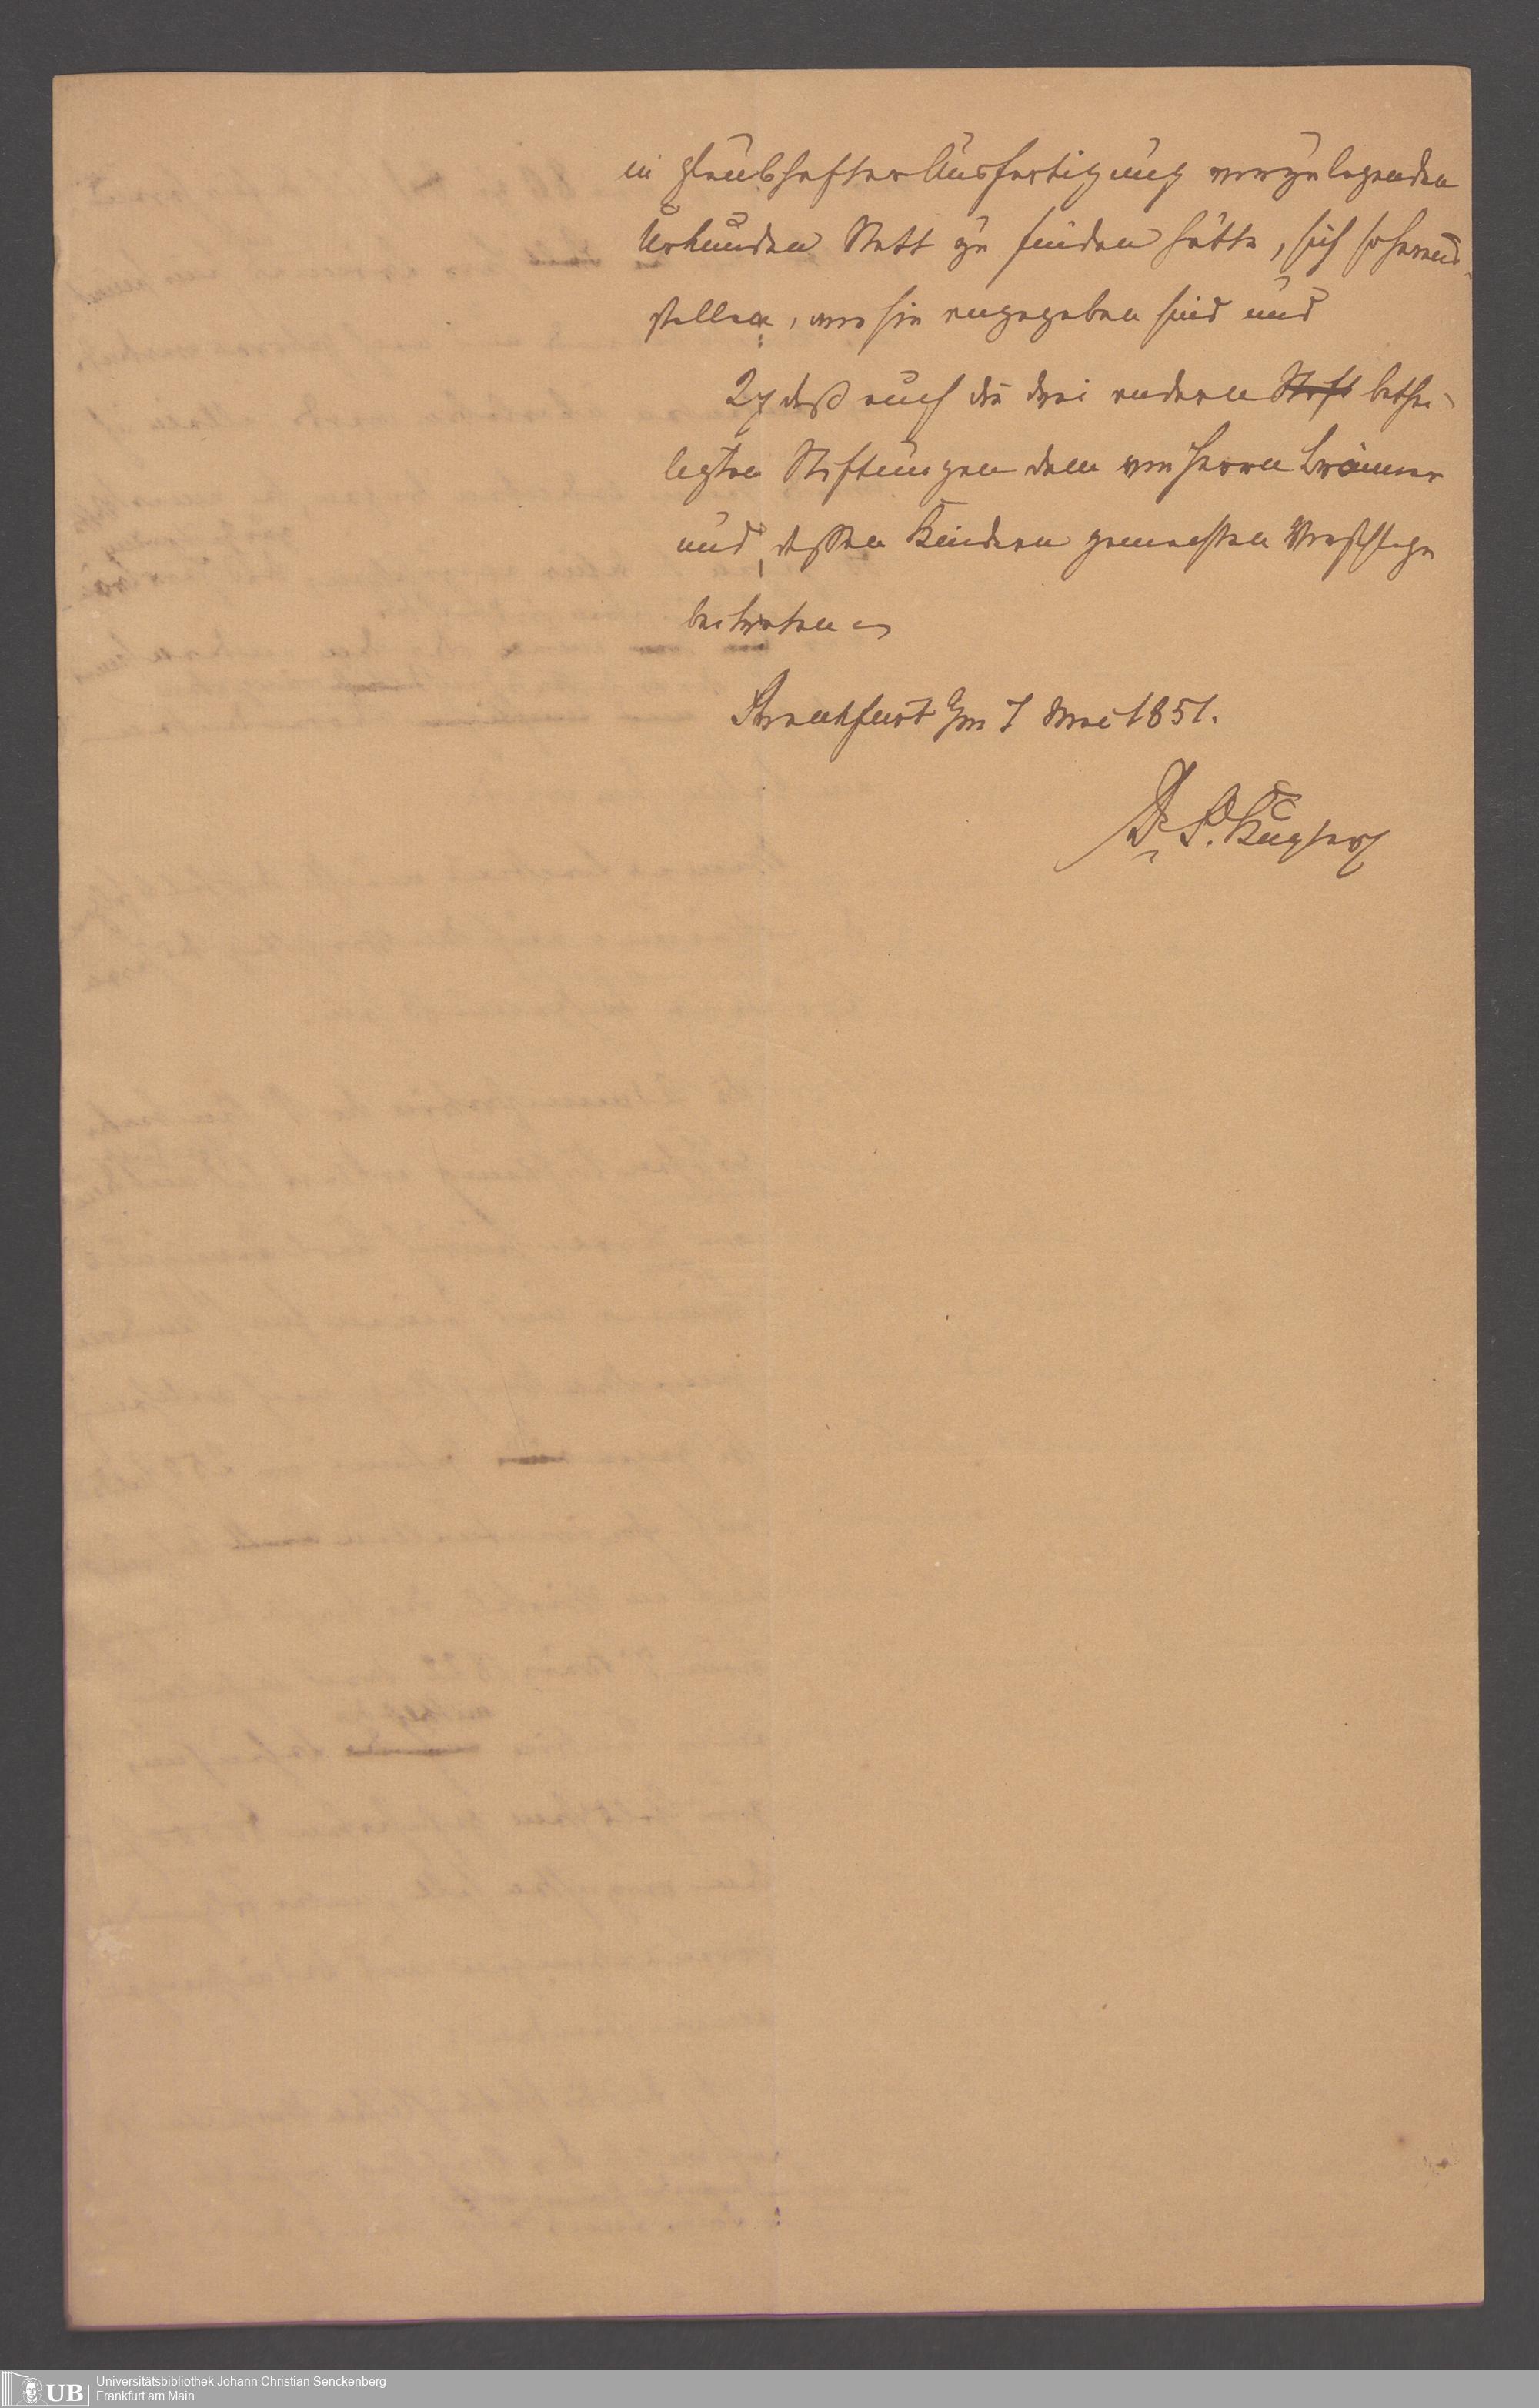 in glaubhafter Ausfertigung vorzulegenden
Urkunden Statt zu finden hätte, sich so heraus-
stellen, wie sie angegeben sind und
2, daß auch die drei anderen Stift bethei-
ligten Stiftungen dem von Herrn Brönner
und dessen Kindern gemachten Vorschlage
beitreten
Frankfurt 7 Mai 1851.
Dr. Kugler
UB
Universitätsbibliothek Johann Christian Senckenberg
Frankfurt am Main